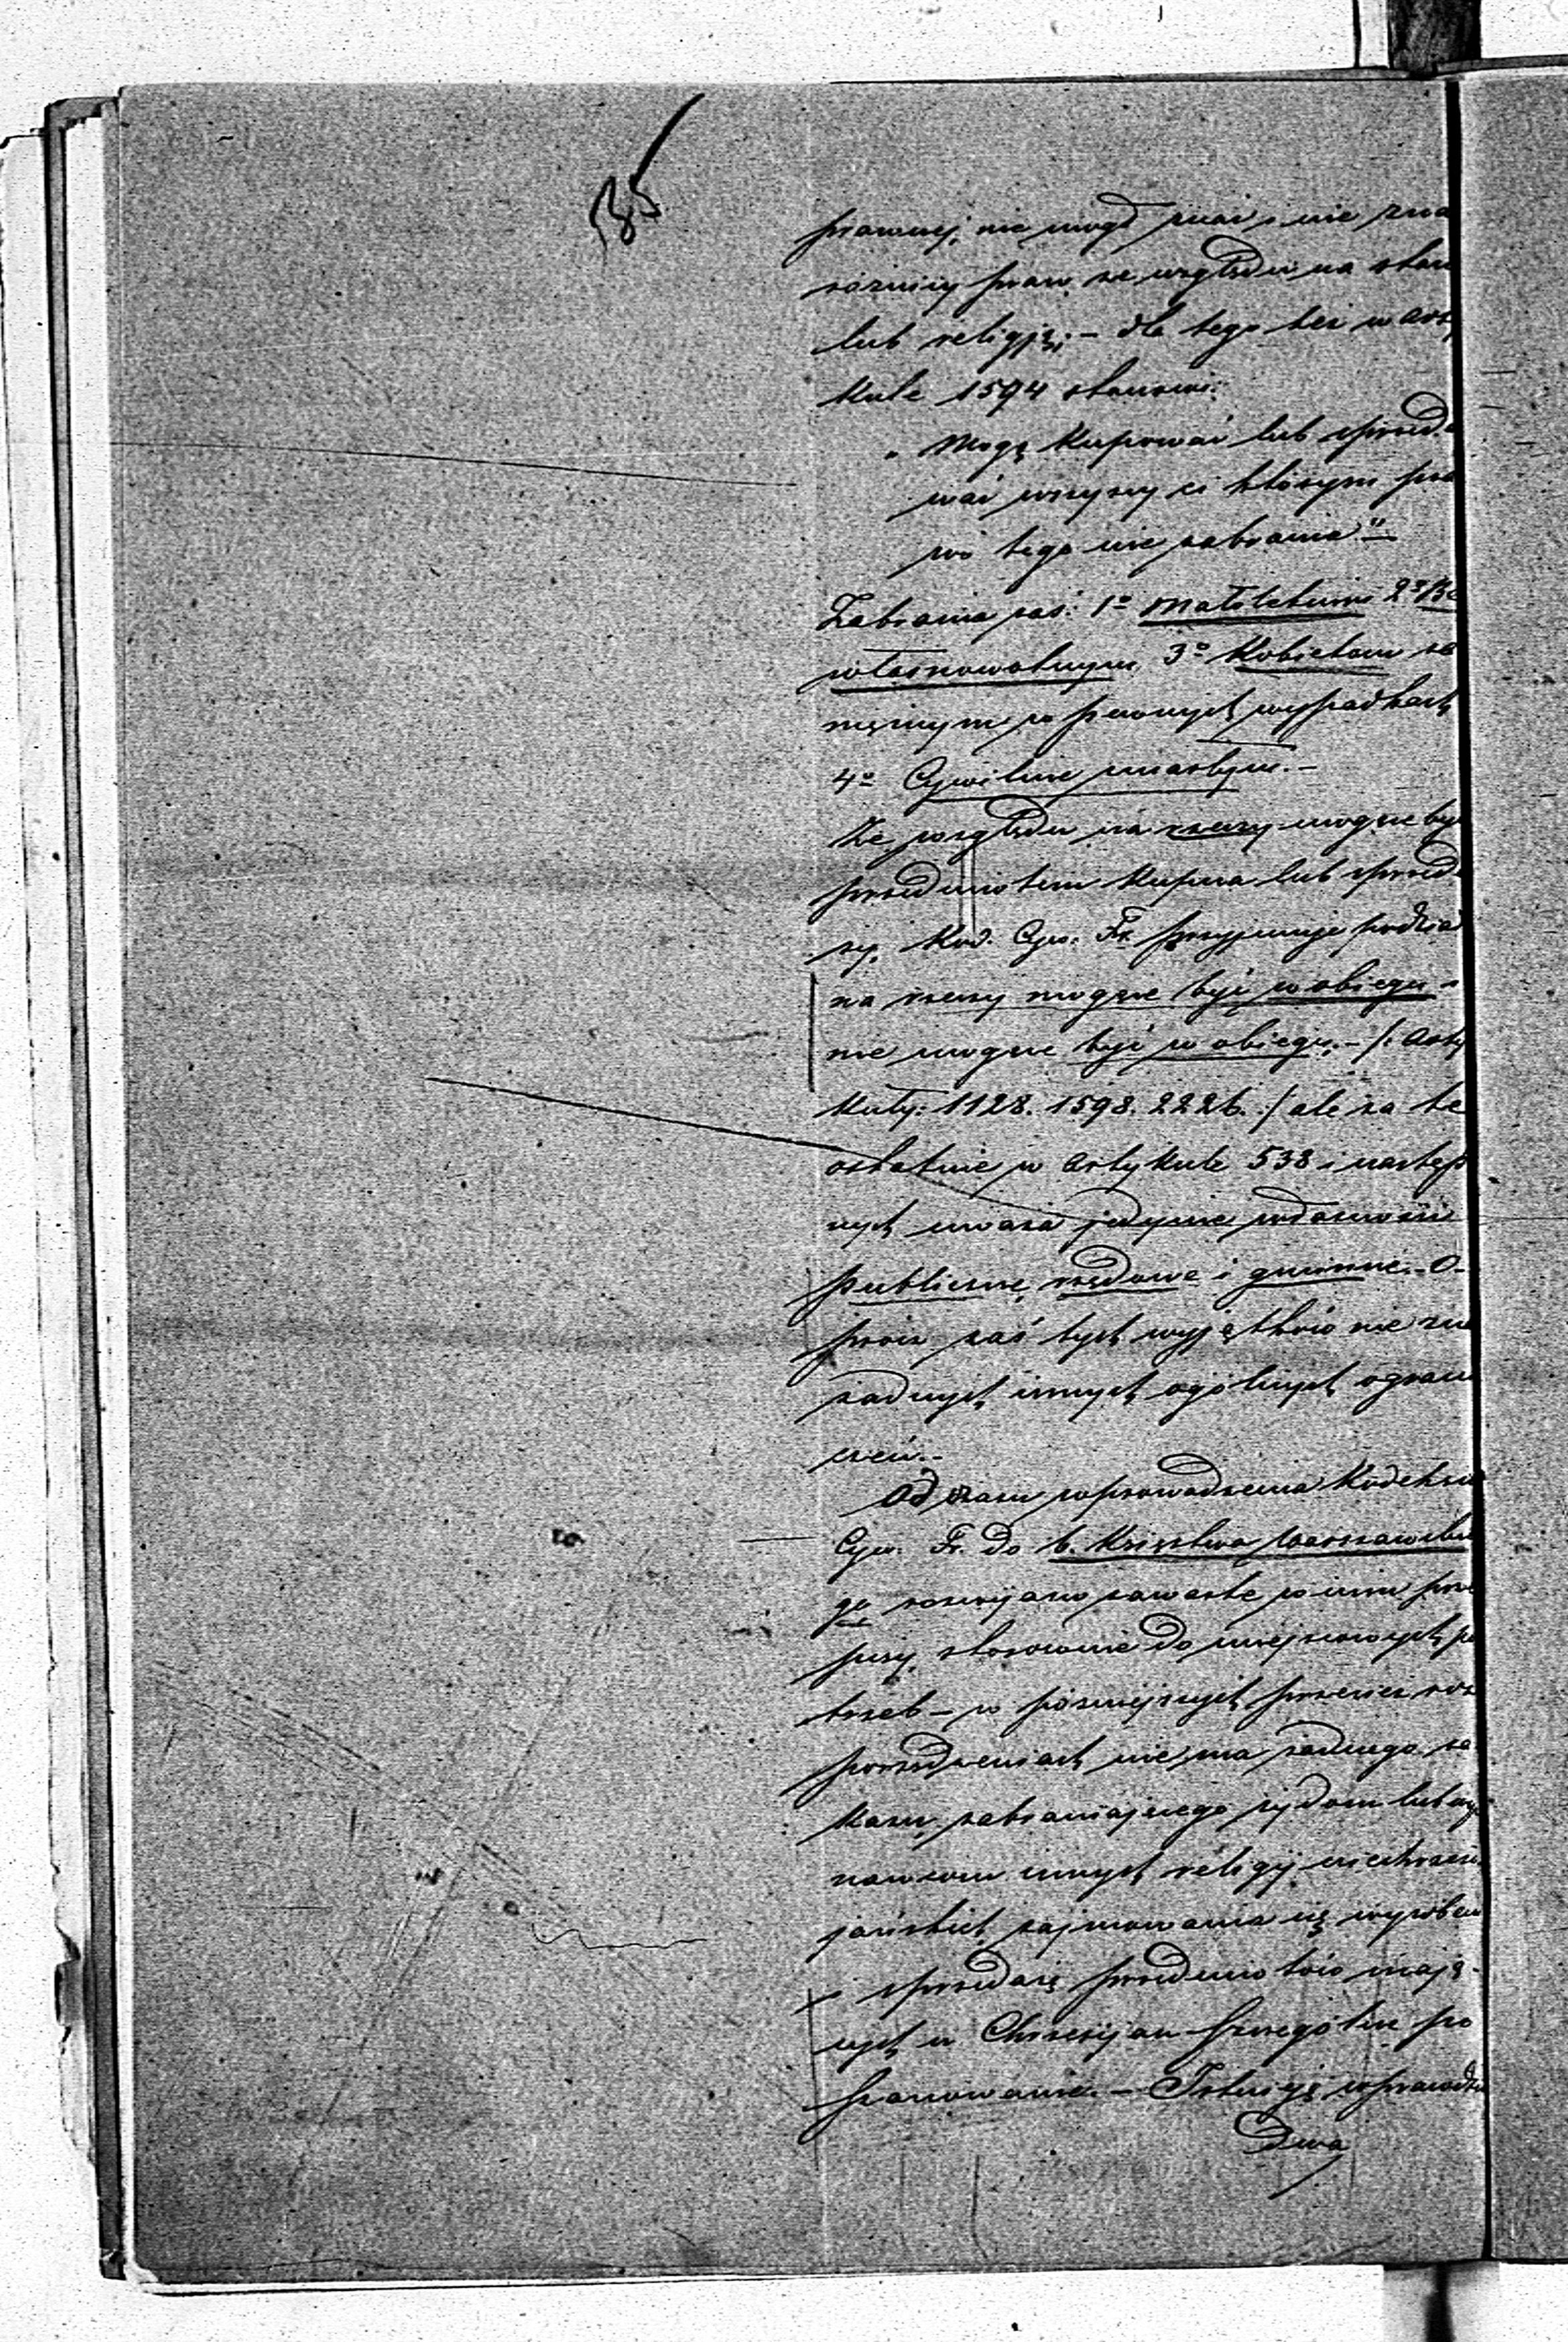 535
prawnej, nie mógł znać i nie zna
różnicy praw ze względu na stan
lub religję; – dla tego też w arty
kule 1594 stanowi:
„Mogą kupować lub sprzeda
wać wszyscy ci którym pra
wo tego nie zabrania"
Zabrania zaś: 1º Małoletnim 2º Be
własnowolnym 3º Kobietom za
mężnym w pewnych wypadkach
4º Cywilnie zmarłym. –
Ze względu na rzeczy mogące być
przedmiotem kupna lub sprzeda
ży, Kod. Cyw. Fr. przyjmuje podział
na rzeczy mogące być w obiegu i
nie mogące być w obiegu. – /: Arty
kuły: 1128. 1598. 2226. :/ ale za te
ostatnie w artykule 538 i następ
nych uważa jedynie własności
publiczne, rządowe i gminne. – O-
prócz zaś tych wyjątków nie zna
żadnych innych ogólnych ograni
czeń. –
Od czasu wprowadzenia Kodeksu
Cyw. Fr. do b. Księstwa Warszawskie
go rozwijano zawarte w nim prze
pisy, stosownie do miejscowych po
trzeb – w późniejszych przecież roz
porządzeniach nie ma żadnego za
kazu, zabraniającego żydom lub wyz
nawcom innych religij niechrześci
jańskich, zajmowania się wyrobem
i sprzedażą przedmiotów mają-
cych u Chrześcijan szczególne po
szanowanie. – Istnieją wprawdzie
Dwa